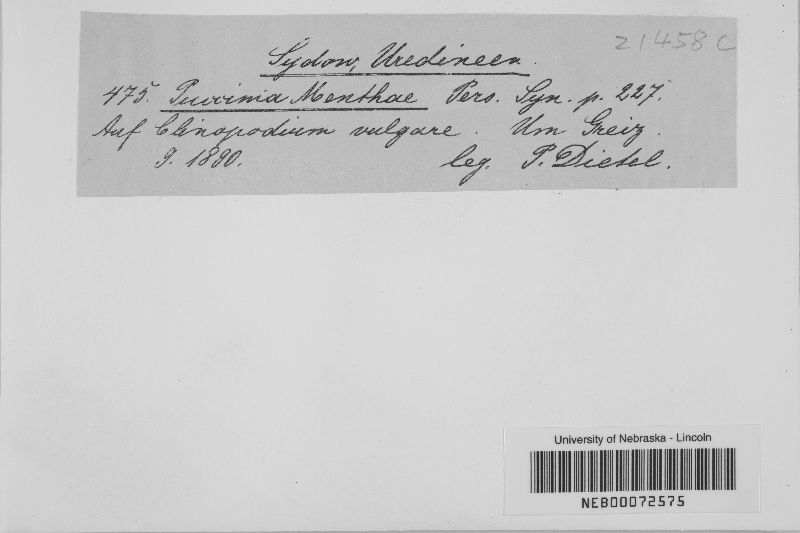 21458 C
Sydow, Uredineen.
475. Puccinia Menthae Pers. Syn. p. 227.
Auf Clinopodium vulgare. Um Greiz.
9. 1890. leg. P. Dietel.
University of Nebraska - Lincoln
NEB00072575